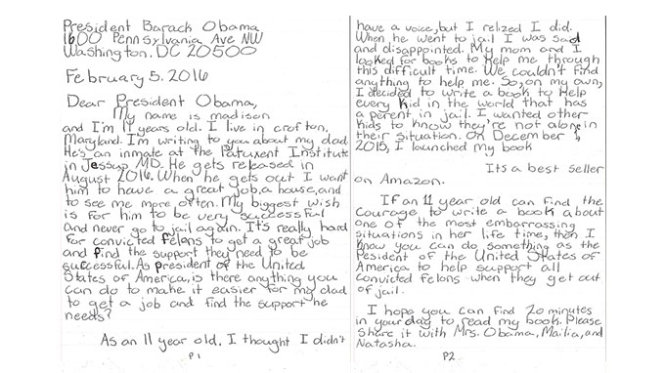 President Barack Obama
1600 Pennsylvania Ave NW
Washington, DC 20500
February 5. 2016
Dear President Obama,
My name is madison
and I'm 11 years old. I live in crofton,
Maryland. I'm writing to you about my dad
He's an inmate at the Patuxent Institute
in Jessup MD. He gets released in
August 2016. When he gets out I want
him to have a great job, a house, and
to see me more often. My biggest wish
is for him to be very successful
and never go to jail again. It's really hard
for convicted felons to get a great job
and find the support they need to be
successful. As president of the United
States of America, is there anything you
can do to make it easier for my dad
to get a job and find the support he
needs?
As an 11 year old, I thought I didn't
P1
have a voice, but I relized I did.
When he went to jail I was sad
and disappointed. My mom and I
looked for books to help me through
this difficult time. We couldn't find
anything to help me. So, on my own,
I decided to write a book to help
every kid in the world that has
a parent in jail. I wanted other
kids to know they're not alone in
their situation. On December 1,
2015, I launched my book
Its a best seller
on Amazon.
If an 11 year old can find the
courage to write a book about
one of the most embarrassing
situations in her life time, then I
know you can do something as the
Pesident of the United States of
America to help support all
convicted felons when they get out
of jail.
I hope you can find 20 minutes
in your day to read my book. Please
share it with Mrs. Obama, Mailia, and
Natasha.
P2